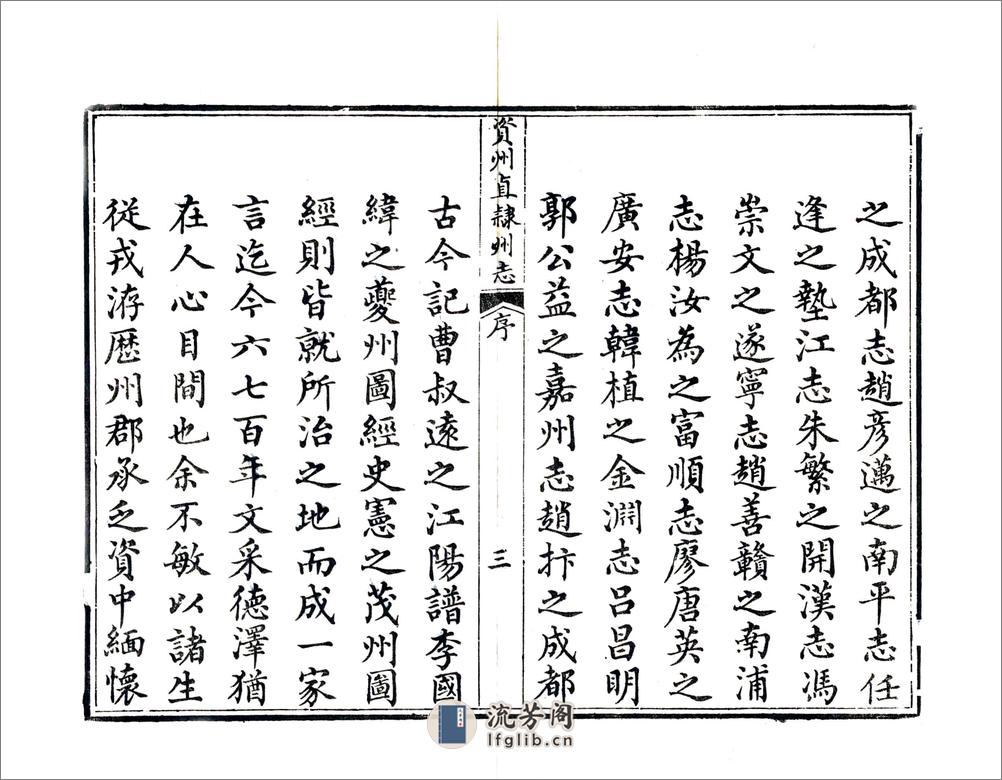 之成都志趙彥邁之南平志任
逢之墊江志朱繁之開漢志馮
崇文之遂寧志趙善贛之南浦
志楊汝為之富順志廖唐英之
廣安志韓植之金淵志呂昌明
郭公益之嘉州志趙抃之成都
資州直隸州志
序
三
古今記曹叔遠之江陽譜李國
緯之夔州圖經史憲之茂州圖
經則皆就所治之地而成一家
言迄今六七百年文采德澤猶
在人心目間也余不敏以諸生
從戎洊歷州郡承乏資中緬懷
流芳阁
lfglib.cn